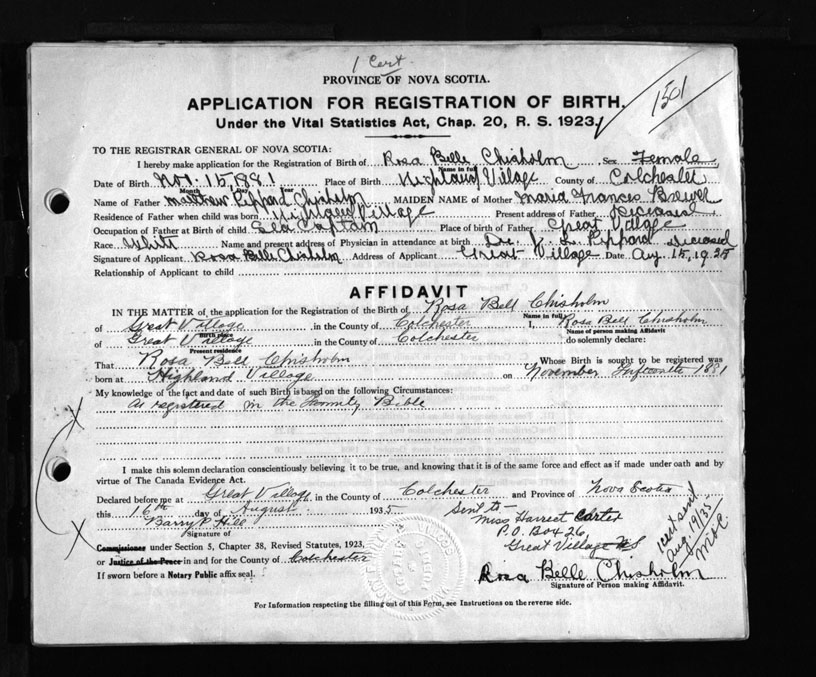 1 Cert.
PROVINCE OF NOVA SCOTIA.
1501
APPLICATION FOR REGISTRATION OF BIRTH.
Under the Vital Statistics Act, Chap. 20, R. S. 1923.
TO THE REGISTRAR GENERAL OF NOVA SCOTIA:
I hereby make application for the Registration of Birth of Rosa Belle Chisholm Sex Female
Name in full
Date of Birth Nov. 15, 1881 Place of Birth Highland Village County of Colchester
Month Day Year
Name of Father Matthew Peppard Chisholm MAIDEN NAME of Mother Maria Frances
Residence of Father when child was born Highland Village Present address of Father Deceased
Occupation of Father at Birth of child Sea Captain Place of birth of Father Great Village
Race. White Name and present address of Physician in attendance at birth Dr. J. L. Peppard Deceased
Signature of Applicant Rosa Belle Chisholm Address of Applicant Great Village Date Aug 15, 1935
Relationship of Applicant to child
AFFIDAVIT
IN THE MATTER of the application for the Registration of the Birth of Rosa Bell Chisholm
Name in full
of Great Village in the County of Colchester I, Rosa Bell Chisholm
Birth place Name of person making Affidavit
of Great Village in the County of Colchester do solemnly declare:
Present residence
That Rosa Bell Chisholm Whose Birth is sought to be registered was
born at Highland Village on November 1881
My knowledge of the fact and date of such Birth is based on the following Circumstances:
As registered in the Family Bible
I make this solemn declaration conscientiously believing it to be true, and knowing that it is of the same force and effect as if made under oath and by
virtue of The Canada Evidence Act.
Declared before me at Great Village in the County of Colchester and Province of Nova Scotia
this 16th day of August 1935 Sent to-
Barry P. Hill Miss Harriet Carter
Signature of P.O. Box 26,
Commissioner under Section 5, Chapter 38, Revised Statutes, 1923, Great Village N.S
or Justice of the Peace in and for the County of Colchester
If sworn before a Notary Public affix seal.
Rosa Belle Chisholm
Signature of Person making Affidavit.
sent
Aug 19/35-
For Information respecting the filling out of this Form, see Instructions on the reverse side.